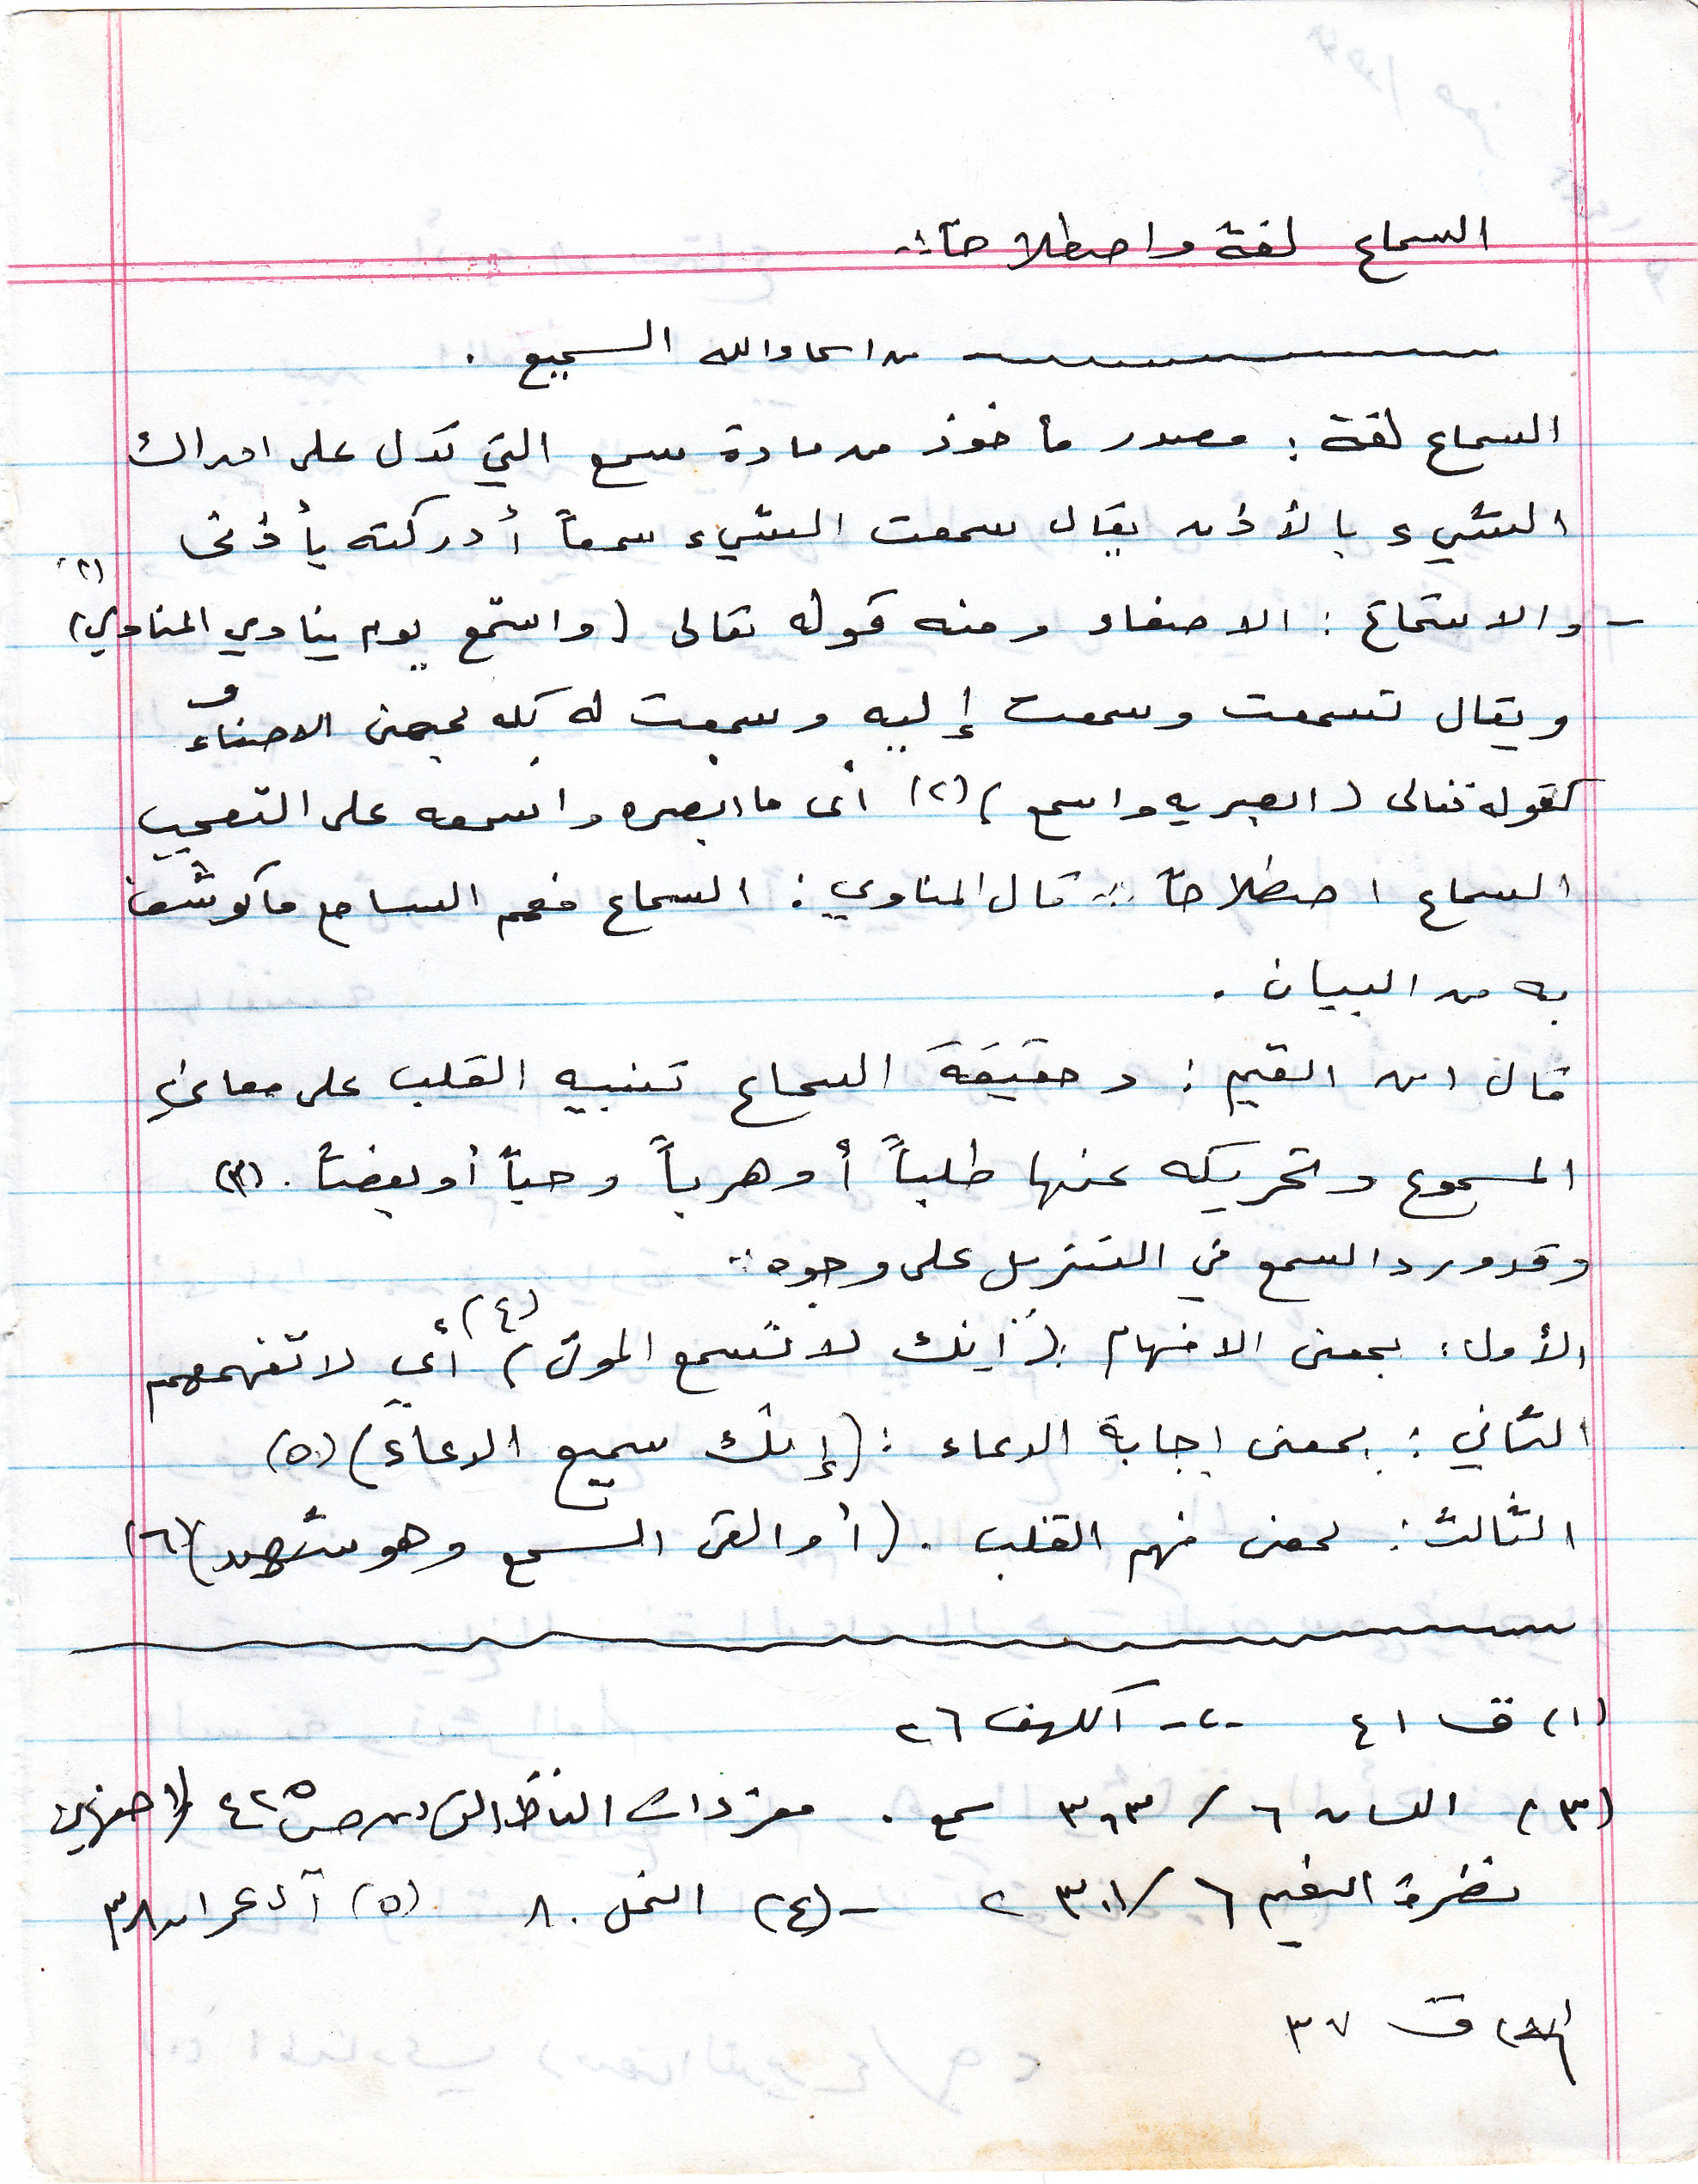 السماع لغة واصطلاحاً :-
من اسماء الله السميع .
السماع لغة : مصدر مأخوذ من مادة سمع التي تدل على ادراك
الشيء بالأذن يقال سمعت الشيء سمعاً أدركته بأذني
- والاستماع : الاصغاء ومنه قوله تعالى (واستمع يوم ينادي المنادي) (١)
ويقال تسمعت وسمعت إليه وسمعت له كله بمعنى الاصغاء و
كقوله تعالى (ابصر به واسمع) (٢) أى ما ابصره واسمعه على التعجب
السماع اصطلاحاً :- قال المناوي : السماع فهم السامع ما كوشف
به من البيان .
قال ابن القيم : وحقيقة السماع تنبيه القلب على معاني
المسموع وتحريكه عنها طلباً أو هرباً وحباً أو بغضاً . (٣)
وقد ورد السمع في التنزيل على وجوه :-
الأول : بمعنى الافهام : (إنك لا تسمع الموتى) (٤) أي لا تفهمهم
الثاني : بمعنى إجابة الدعاء : (إنك سميع الدعاء) (٥)
الثالث : بمعنى فهم القلب . (أو القى السمع وهو شهيد) (٦)
(١) ق ٤١ -٢- الكهف ٢٦
(٣) اللسان ٦ / ٣٦٣ سمع . مفردات الفاظ القرآن ص ٤٢٥ الاصفهاني
نضرة النعيم ٦ / ٢٣٠١ - (٤) النمل ٨٠ (٥) آل عمران ٣٨
ق ٣٧